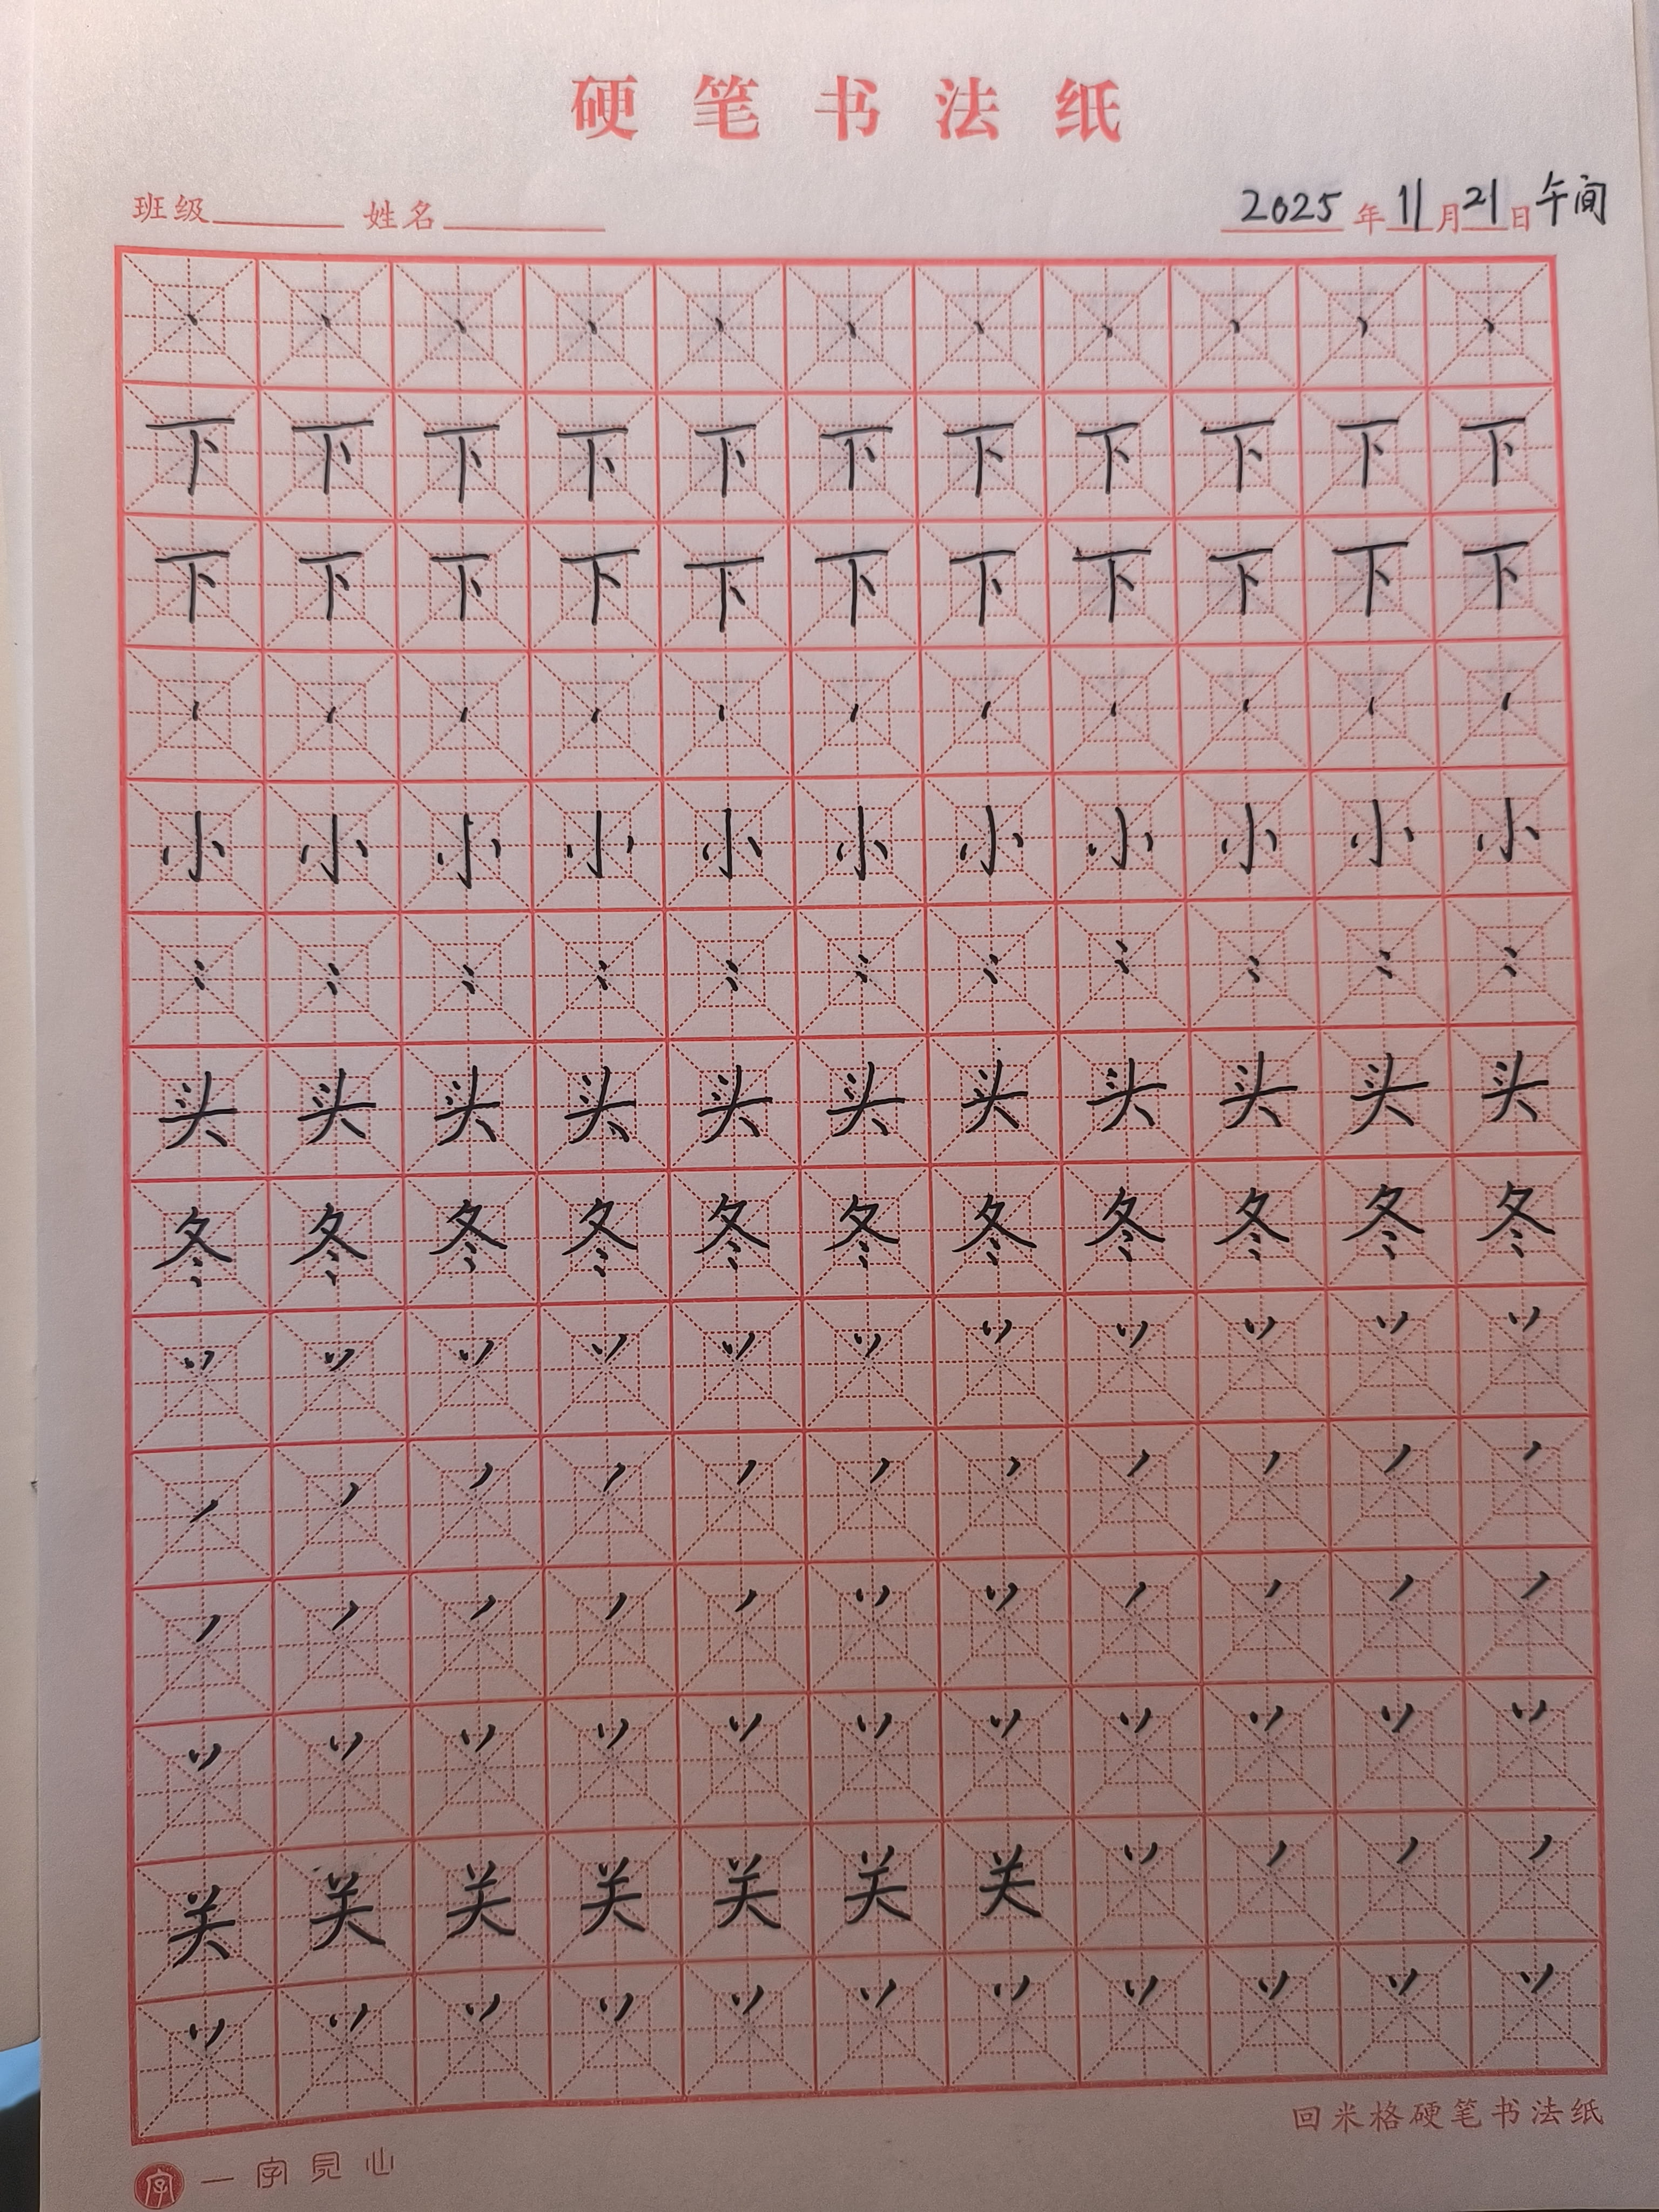 硬笔书法纸
班级 姓名 2025年11月21日午间
丶丶丶丶丶丶丶丶丶丶丶
下下下下下下下下下下下
下下下下下下下下下下下
小小小小小小小小小小小
头头头头头头头头头头头
冬冬冬冬冬冬冬冬冬冬冬
关关关关关关关
回米格硬笔书法纸
字 一字见心